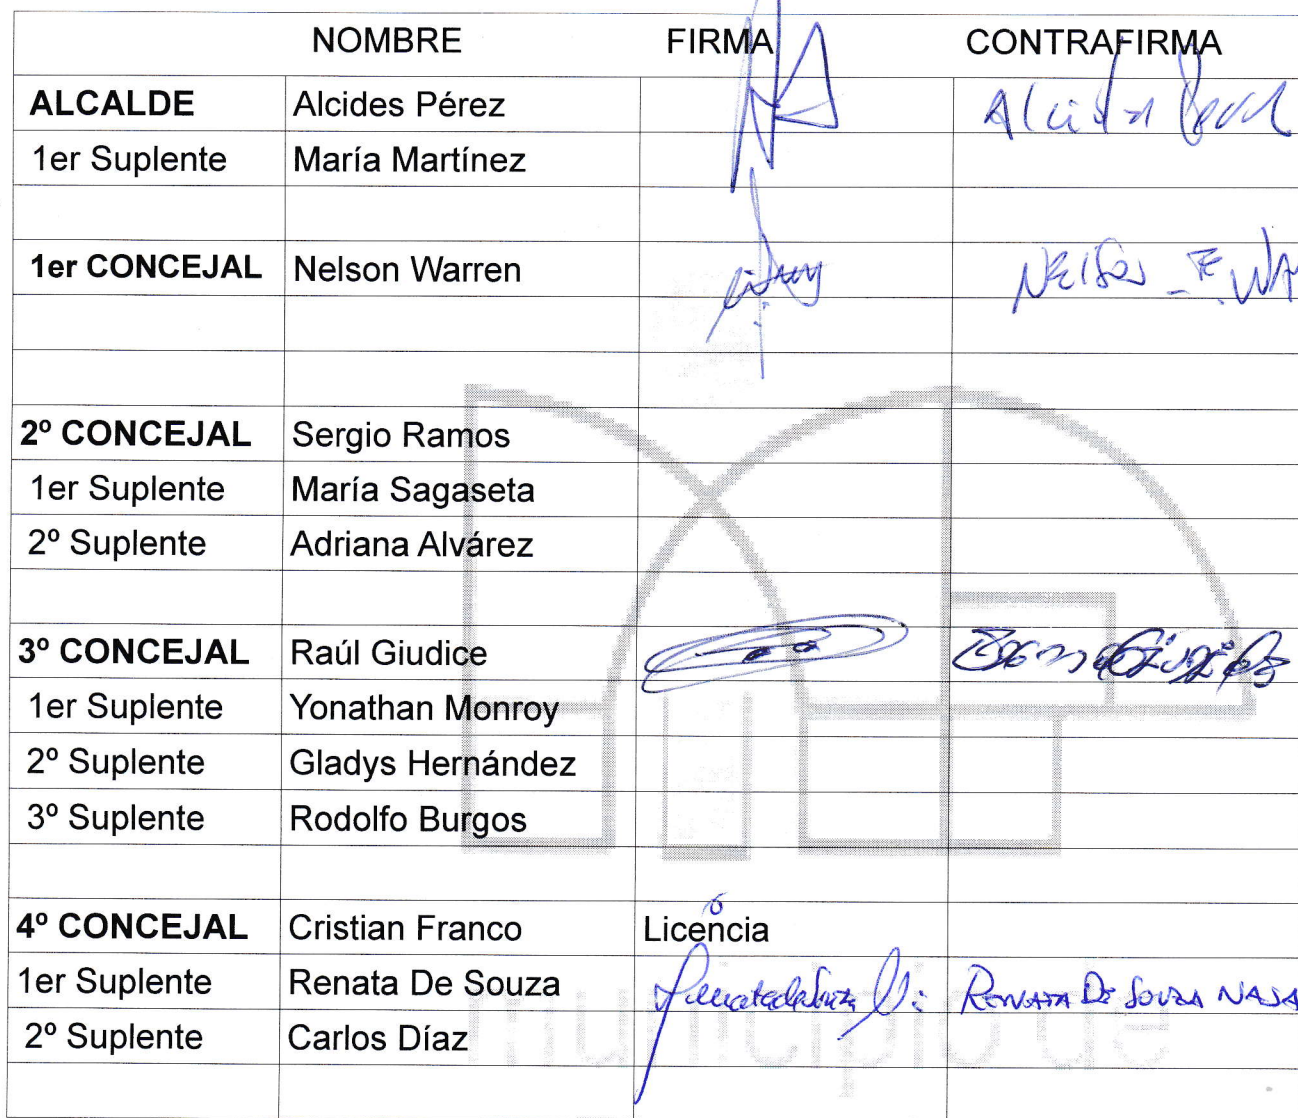 NOMBRE FIRMA CONTRAFIRMA
ALCALDE Alcides Pérez
1er Suplente María Martínez
1er CONCEJAL Nelson Warren Nelson
2º CONCEJAL Sergio Ramos
1er Suplente María Sagaseta
2º Suplente Adriana Alvárez
3º CONCEJAL Raúl Giudice
1er Suplente Yonathan Monroy
2º Suplente Gladys Hernández
3º Suplente Rodolfo Burgos
4º CONCEJAL Cristian Franco Licencia
1er Suplente Renata De Souza RENATA DE SOUZA
2º Suplente Carlos Díaz
municipio de